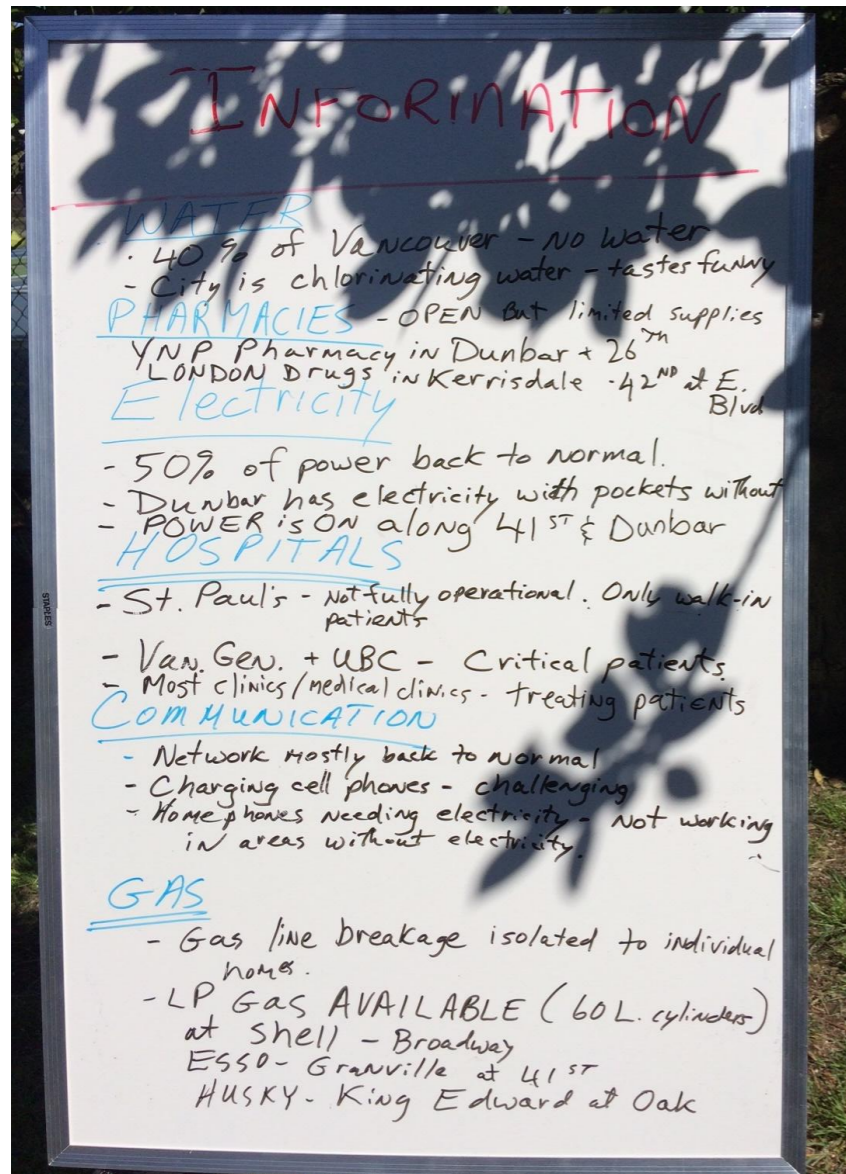 INFORMATION
WATER
· 40% of Vancouver - no water
- City is chlorinating water - tastes funny
PHARMACIES - OPEN But limited supplies
YNP Pharmacy in Dunbar + 26TH
LONDON Drugs in Kerrisdale · 42ND at E. Blvd
Electricity
- 50% of power back to normal.
- Dunbar has electricity with pockets without
- POWER is ON along 41ST & Dunbar
HOSPITALS
- St. Paul's - Not fully operational. Only walk-in
patients
- Van. Gen. + UBC - Critical patients
- Most clinics/medical clinics - treating patients
COMMUNICATION
- Network mostly back to normal
- Charging cell phones - challenging
- Home phones needing electricity - Not working
in areas without electricity.
GAS
- Gas line breakage isolated to individual
homes.
- LP Gas AVAILABLE (60 L. cylinders)
at Shell - Broadway
ESSO - Granville at 41ST
HUSKY - King Edward at Oak
STAPLES